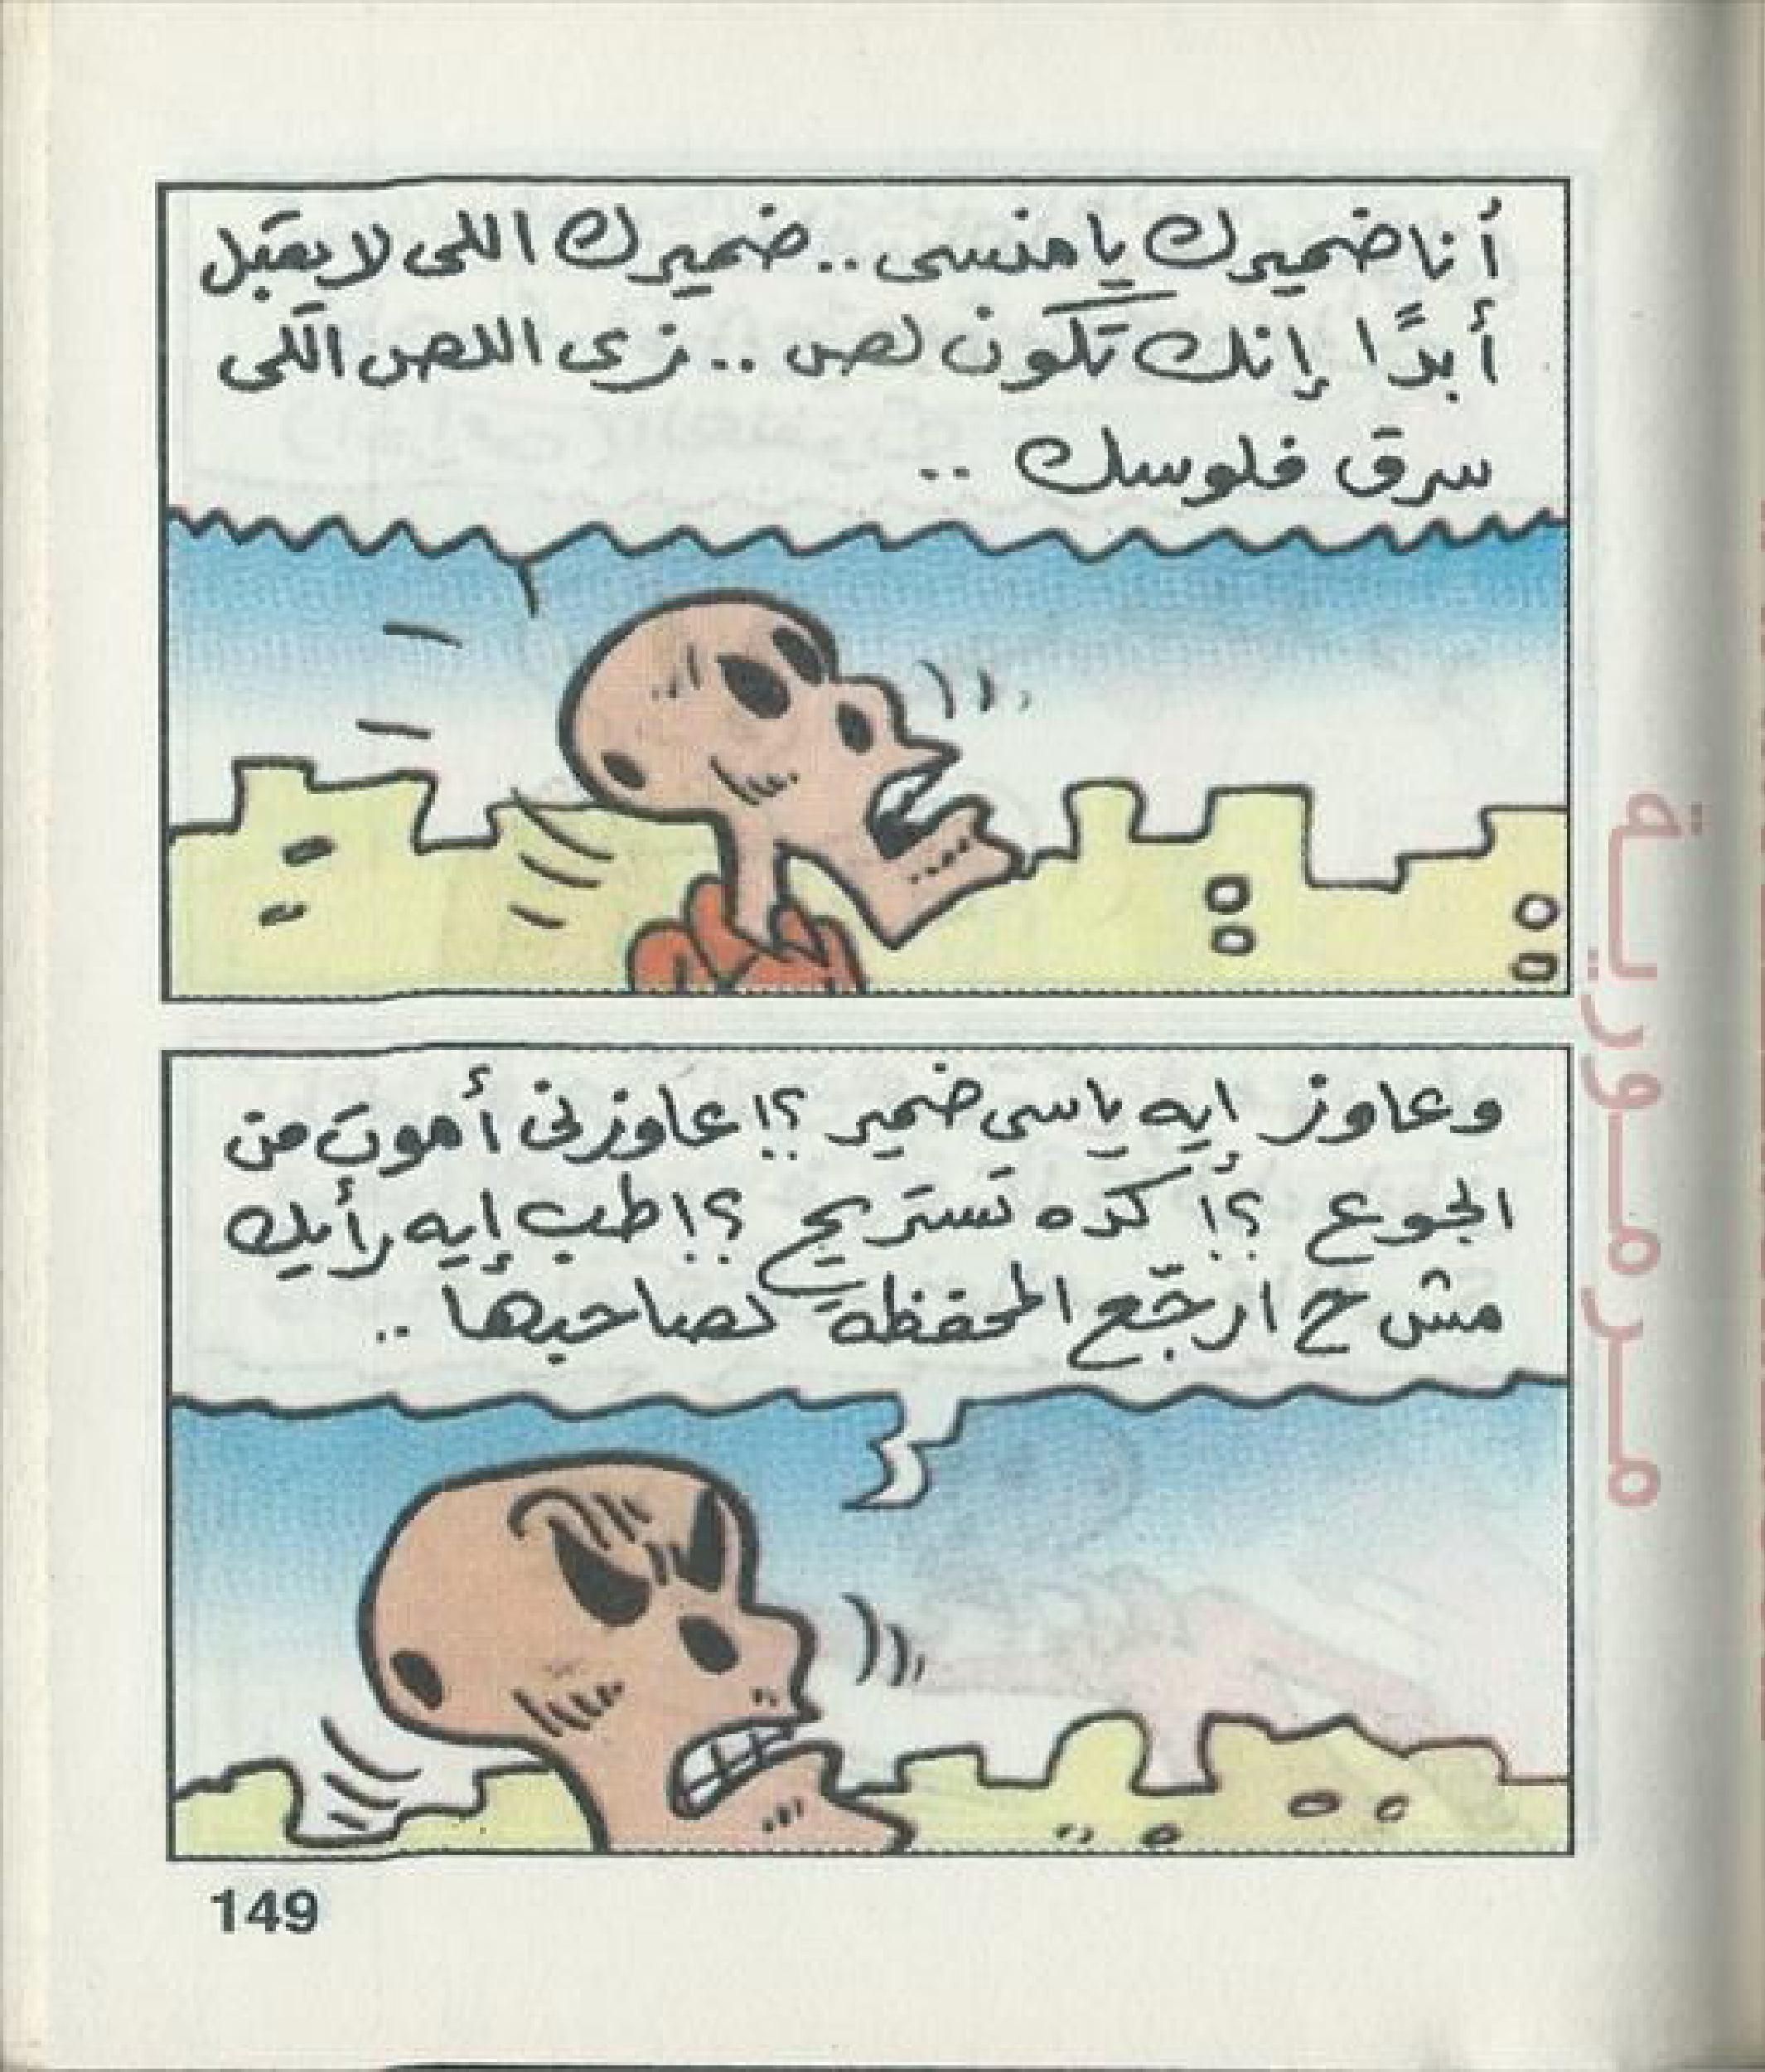 أنا ضميرك يا منسى .. ضميرك اللى لا يقبل
أبدًا إنك تكون لص .. زى اللص اللى
سرق فلوسك ..
وعاوز إيه ياسى ضمير ؟! عاوزنى أموت من
الجوع ؟! كده تستريح ؟! طب إيه رأيك
مش ح ارجّع المحفظة لصاحبها ..
149
مرمورية